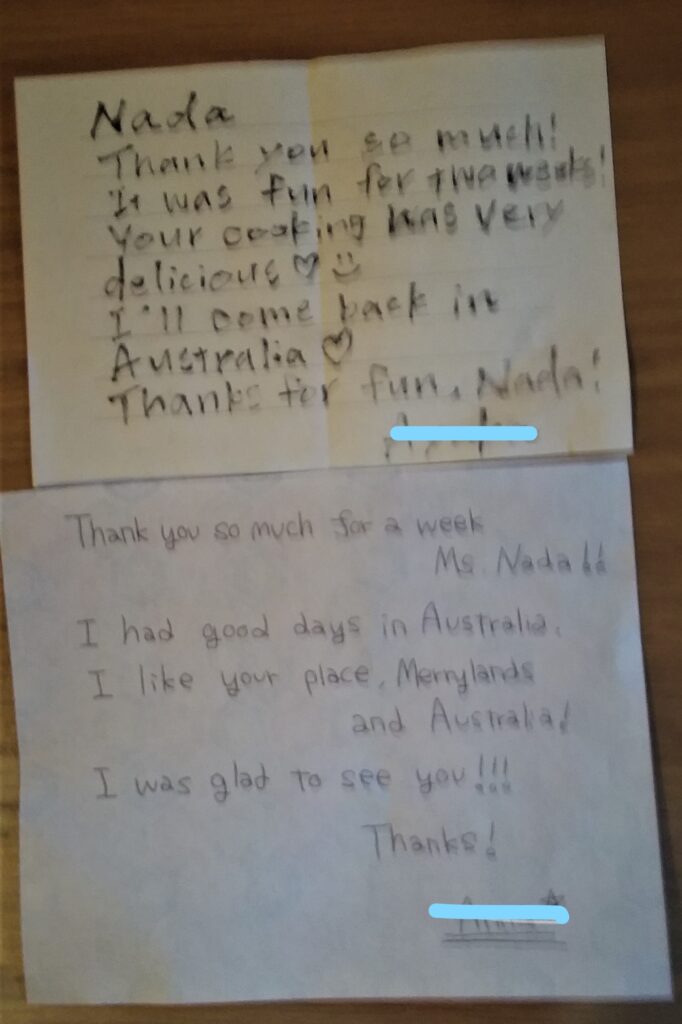 Nada
Thank you so much!
It was fun for two weeks!
Your cooking was very
delicious♡☺
I'll come back in
Australia♡
Thanks for fun, Nada!
Thank you so much for a week
Ms. Nada!!
I had good days in Australia.
I like your place, Merrylands
and Australia!
I was glad to see you!!!
Thanks!